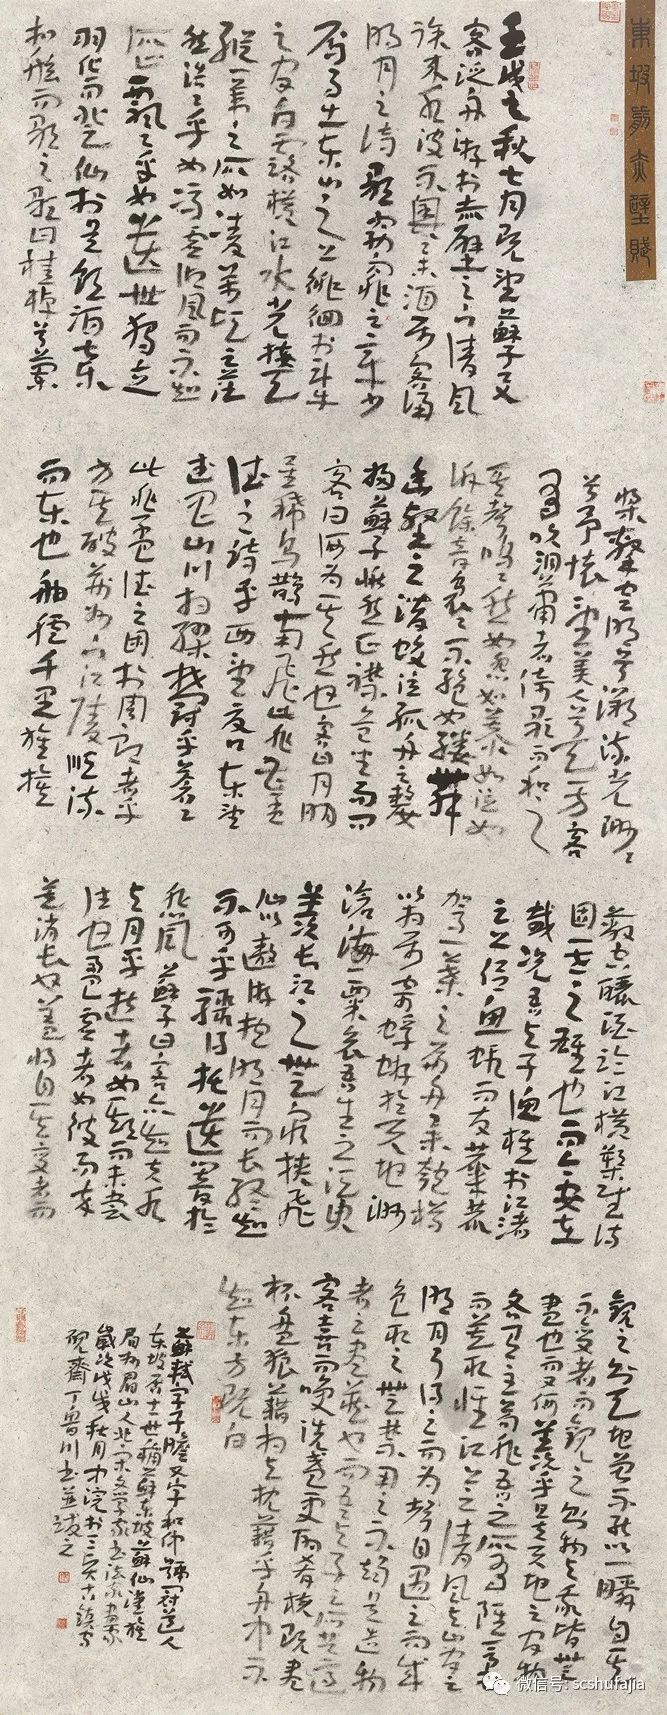 東坡前赤壁賦
壬戌之秋七月既望蘇子与
客泛舟游於赤壁之下清風
徐来水波不興舉酒属客誦
明月之诗歌窈窕之章少
焉月出东山之上徘徊於斗牛
之间白露横江水光接天
縱一苇之所如凌萬頃之茫
然浩浩乎如馮虚御風而不知
所止飘飘乎如遗世獨立
羽化而登仙於是飲酒樂
扣舷而歌之歌曰桂棹兮蘭
槳擊空明兮溯流光渺渺
兮予懷望美人兮天一方客
有吹洞簫者倚歌而和之
其聲呜呜然如怨如慕如泣如
诉餘音袅袅不绝如縷舞
幽壑之潜蛟泣孤舟之嫠
婦蘇子愀然正襟危坐而问
客曰何为其然也客曰月明
星稀乌鵲南飛此非曹孟
德之诗乎西望夏口东望
武昌山川相缪鬱乎苍苍
此非孟德之困於周郎者乎
方其破荆州下江陵順流
而东也舳艫千里旌旗
蔽空釃酒临江横槊赋诗
固一世之雄也而今安在
哉况吾与子渔樵於江渚
之上侣鱼虾而友麋鹿
驾一葉之扁舟舉匏樽
以相属寄蜉蝣於天地渺
滄海一粟哀吾生之须臾
羡长江之無窮挟飛
仙以遨游抱明月而长终知
不可乎驟得托遗響於
悲風蘇子曰客亦知夫水
与月乎逝者如斯而未尝
往也盈虚者如彼而卒
莫消长也蓋将自其变者而
觀之则天地曾不能以一瞬自其
不变者而觀之则物与我皆無
盡也而又何羡乎且夫天地之间物
各有主苟非吾之所有雖一毫
而莫取惟江上之清風与山间之
明月耳得之而为聲目遇之而成
色取之無禁用之不竭是造物
者之無盡藏也而吾与子之所共適
客喜而笑洗盏更酌肴核既盡
杯盘狼籍相与枕藉乎舟中不
知东方既白
蘇軾字子瞻又字和仲號冠道人
东坡居士世稱蘇东坡蘇仙漢族
眉州眉山人北宋文学家书法家画家
歲次戊戌秋月中浣书於三
砚齋丁魯川书並
微信号: scshufajia